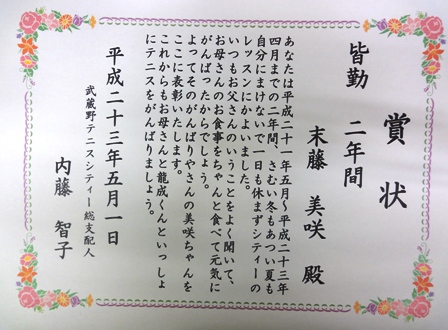 賞状
皆勤 二年間
末藤 美咲 殿
あなたは平成二十一年五月~平成二十三年
四月までの二年間、さむい冬もあつい夏も
自分にまけないで一日も休まずシティーの
レッスンにかよいました。
いつもお父さんのいうことをよく聞いて、
お母さんのお食事をちゃんと食べて元気に
がんばったからでしょう。
よってそのがんばりやさんの美咲ちゃんを
ここに表彰いたします。
これからもお母さんと龍成くんといっしょ
にテニスをがんばりましょう。
平成二十三年五月一日
武蔵野テニスシティー総支配人
内藤 智子